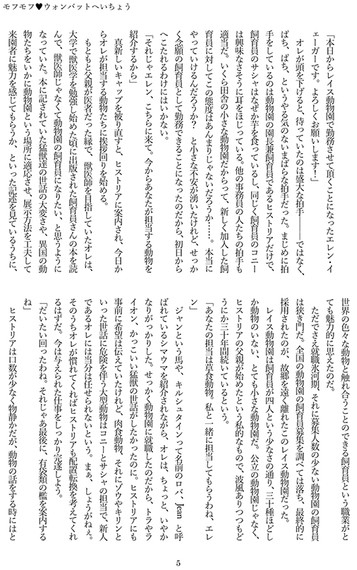 モフモフ♥ウォンバットへいちょう
「本日からレイス動物園で勤務させて頂くことになったエレン・イ
ェーガーです。よろしくお願いします！」
オレが頭を下げると、待っていたのは盛大な拍手――ではなく、
ぱち、ぱち、というやる気のないまばらな拍手だった。まじめに拍
手をしているのは動物園の園長兼飼育員であるヒストリアだけで、
飼育員のサシャはなぜか芋を食っているし、同じく飼育員のコニー
は興味なさそうに耳をほじっている。他の事務員の人たちの拍手も
適当だ。いくら田舎の小さな動物園だからって、新しく加入した飼
育員に対してこの態度はあんまりじゃないだろうか……。本当に
やっていけるんだろうか？　と小さな不安が湧いたけれど、せっか
く念願の飼育員として勤務できることになったのだから、初日から
へこたれるわけにはいかない。
「それじゃエレン、こちらに来て。今からあなたが担当する動物を
紹介するから」
真新しいキャップを被り直すと、ヒストリアに案内され、今日か
らオレが担当する動物たちに挨拶回りを始める。
もともと父親が医者だった縁で、獣医師を目指していたオレは、
大学で獣医学を勉強し始めた頃に出版された飼育員さんの本を読
んで、獣医師じゃなくて動物園の飼育員になりたい、と思うように
なっていた。本に記されていた猛獣達の世話の大変さや、異国の動
物たちをいかに動物園という場所に適応させ、展示方法を工夫して
来園者に魅力を感じてもらうか、といった記述を見ているうちに、
世界の色々な動物と触れ合うことのできる飼育員という職業がと
ても魅力的に思えたのだ。
ただでさえ就職氷河期、それに募集人数の少ない動物園の飼育員
は狭き門だ。全国の動物園の飼育員募集を調べては落ち、最終的に
採用されたのが、故郷を遠く離れたこのレイス動物園だった。
レイス動物園は飼育員が四人という少なさの通り、三十種ほどし
か動物のいない、とても小さな動物園だ。公立の動物園じゃなく、
ヒストリアの父親が始めたという私的なもので、波風ありつつもど
うにか三十年間続いているという。
「あなたの担当は草食動物。私と一緒に担当してもらうわね、エレ
ン」
ジャンという馬や、キルシュタインって名前のロバ、Jeanと呼
ばれているシマウマを紹介されながら、オレは、ちょっと、いやか
なりがっかりした。せっかく動物園に就職したのだから、トラやラ
イオン、かっこいい猛獣の世話がしたかったのに。ヒストリアにも
事前に希望は伝えていたけれど、肉食動物、それにゾウやキリンと
いった世話に危険を伴う大型動物はコニーとサシャの担当で、新人
であるオレには当分は任せられないという。まぁ、しょうがねぇ。
そのうちオレが慣れてくればヒストリアも配置転換を考えてくれ
るはずだ。今は与えられた仕事をしっかり完遂しよう。
「だいたい回ったわね。それじゃあ最後に、有袋類の檻を案内する
ね」
ヒストリアは口数が少なく物静かだが、動物の話をする時にはと
5